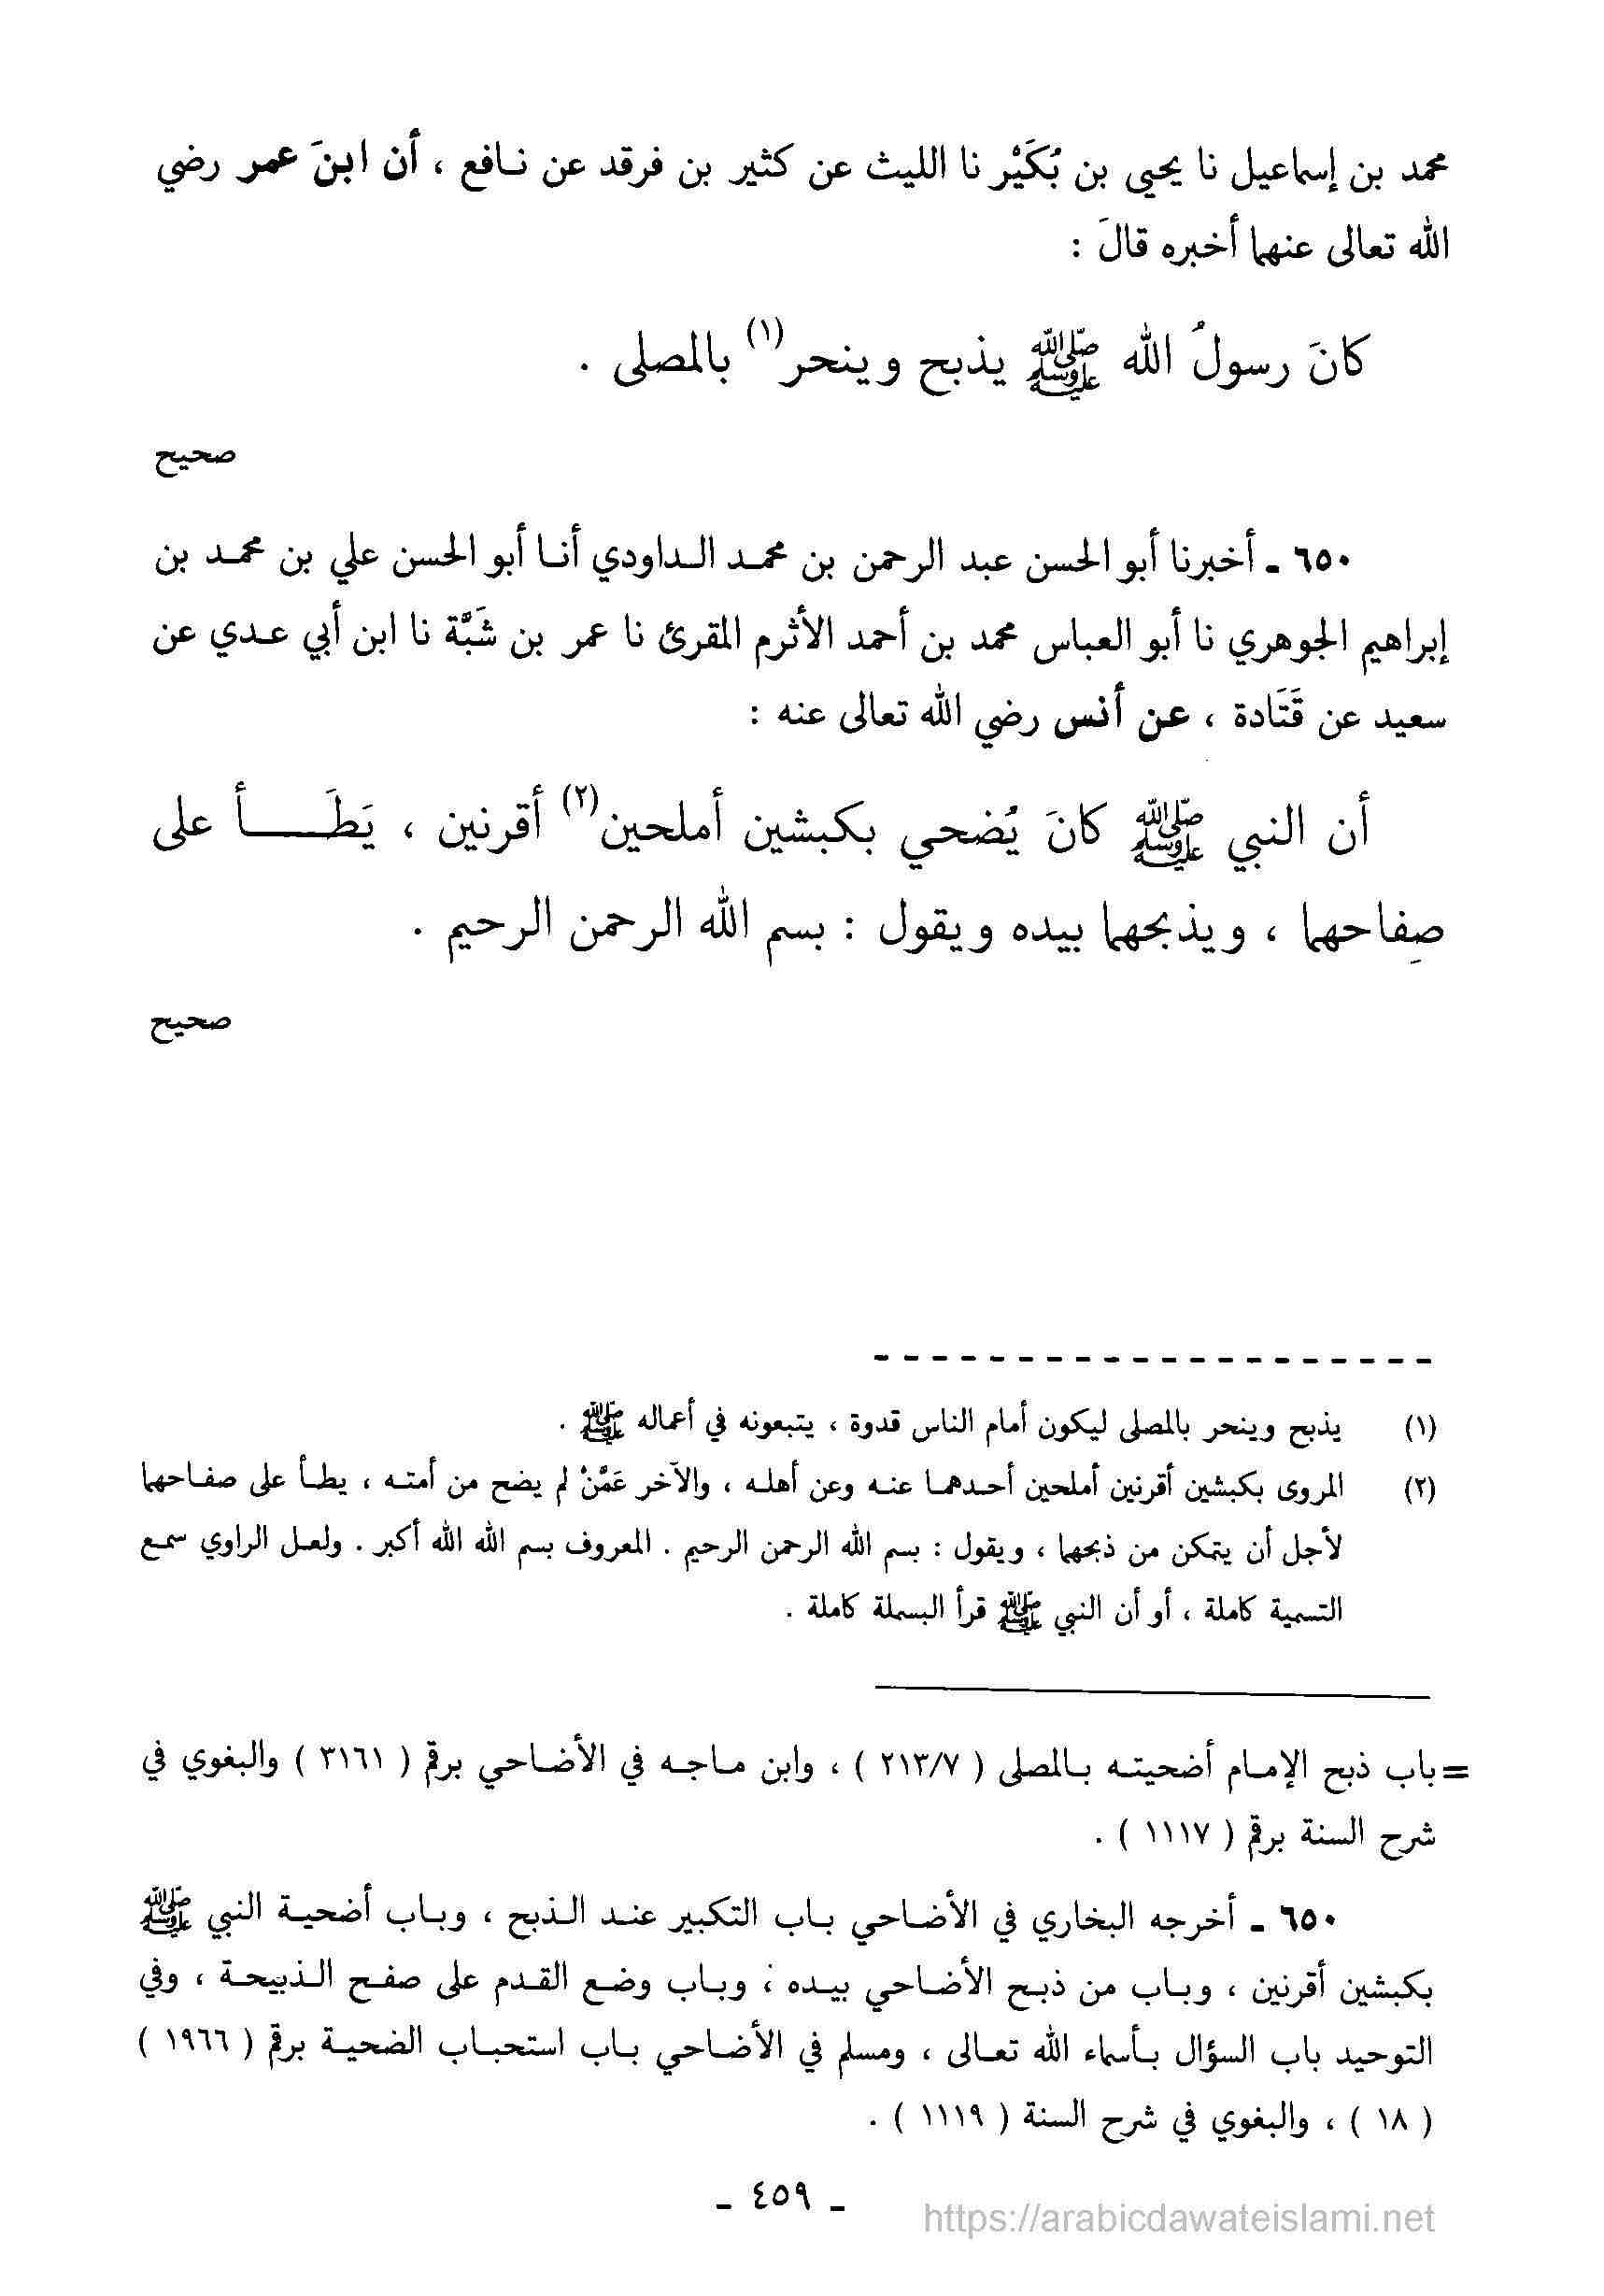 محمد بن إسماعيل نا يحيى بن بُكَيْر نا الليث عن كثير بن فرقد عن نافع ، أن ابنَ عمر رضي
الله تعالى عنهما أخبره قالَ :
كانَ رسولُ الله ﷺ يذبح وينحر(١) بالمصلى .
صحيح
٦٥٠ - أخبرنا أبو الحسن عبد الرحمن بن محمد الداودي أنا أبو الحسن علي بن محمد بن
إبراهيم الجوهري نا أبو العباس محمد بن أحمد الأثرم المقرئ نا عمر بن شَبَّة نا ابن أبي عدي عن
سعيد عن قَتَادة ، عن أنس رضي الله تعالى عنه :
أن النبي ﷺ كانَ يُضحي بكبشين أملحين(٢) أقرنين ، يَطَأ على
صِفاحهما ، ويذبحهما بيده ويقول : بسم الله الرحمن الرحيم .
صحيح
(١) يذبح وينحر بالمصلى ليكون أمام الناس قدوة ، يتبعونه في أعماله ﷺ .
(٢) المروى بكبشين أقرنين أملحين أحدهما عنه وعن أهله ، والآخر عَمَّنْ لم يضح من أمته ، يطأ على صفاحهما
لأجل أن يتمكن من ذبحهما ، ويقول : بسم الله الرحمن الرحيم . المعروف بسم الله الله أكبر . ولعل الراوي سمع
التسمية كاملة ، أو أن النبي ﷺ قرأ البسملة كاملة .
= باب ذبح الإمام أضحيته بالمصلى ( ٢١٣/٧ ) ، وابن ماجه في الأضاحي برقم ( ٣١٦١ ) والبغوي في
شرح السنة برقم ( ١١١٧ ) .
٦٥٠ - أخرجه البخاري في الأضاحي باب التكبير عند الذبح ، وباب أضحية النبي ﷺ
بكبشين أقرنين ، وباب من ذبح الأضاحي بيده ؛ وباب وضع القدم على صفح الذبيحة ، وفي
التوحيد باب السؤال بأسماء الله تعالى ، ومسلم في الأضاحي باب استحباب الضحية برقم ( ١٩٦٦ )
( ١٨ ) ، والبغوي في شرح السنة ( ١١١٩ ) .
- ٤٥٩ -
https://arabicdawateislami.net